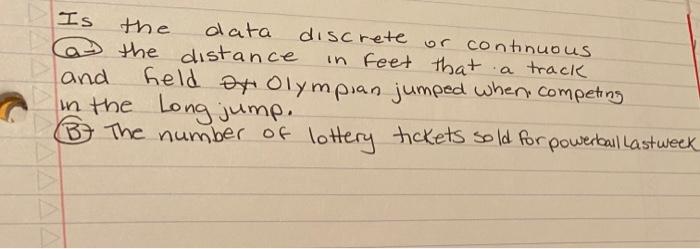 Is the data discrete or continuous
(a) the distance in feet that a track
and field Olympian jumped when competing
in the Long jump.
(B) The number of lottery tickets sold for powerball Last week